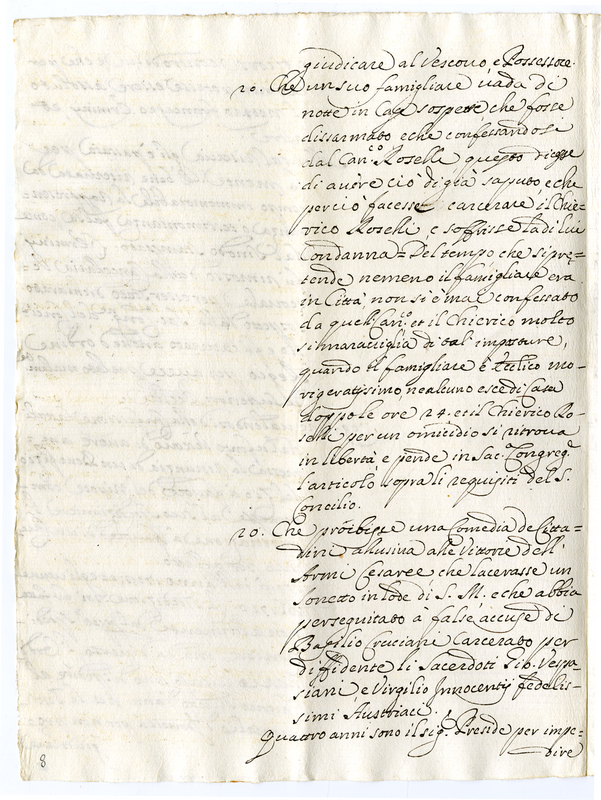 giudicare al Vescovo, e Possessore.
10. Che un suo famigliare vada di
notte in Casa sospette che fosse
dissarmato e che confessandosi
dal Can.co Roselli questo dicesse
di avere ciò di già saputo, e che
perciò facesse carcerare il Chie-
rico Roselli e soffrisse la di lui
Condanna = Del tempo che si pre-
tende nemeno il famigliare era
in Città non si è mai confessato
da quel Can.co et il Chierico molto
si maraviglia di tal imposture,
quando il famigliare è
morigeratissimo, ne alcuno esce di Casa
doppo le ore 24. et il Chierico Ro-
selli per un omicidio si ritrova
in libertà e pende in Sac. Congreg.e
l'articolo sopra li requisiti del S.
Concilio.
10. Che proibisse una Comedia de Citta-
dini allusiva alle Vittorie dell'
Armi Cesaree che lacerasse un
sonetto in lode di S. M. e che abbia
perseguitato à false accuse di
Basilio Cruciani Carcerato per
diffidente li Sacerdoti Gio. Vespa-
siani e Virgilio Innocentij fedelis-
simi Austriaci.
Quattro anni sono il sig.r Preside per impe=
dire
8